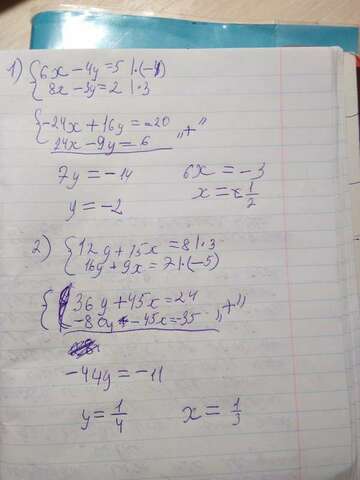 1) {6x - 4y = 5 |·(-4)
{8x - 3y = 2 |·3
{-24x + 16y = -20
24x - 9y = 6 „+"
7y = -14 6x = -3
y = -2 x = -1/2
2) {12y + 15x = 8 |·3
{16y + 9x = 7 |·(-5)
{36y + 45x = 24
-80y - 45x = -35 „+"
-44y = -11
y = 1/4 x = 1/3